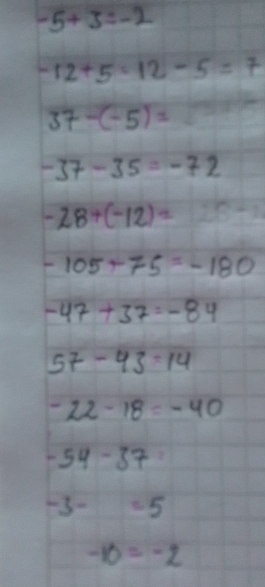 -5+3=-2
-12+5=12-5=7
37-(-5)=
-37-35=-72
-28+(-12)=
-105+75=-180
-47+37=-84
57-43=14
-22-18=-40
-54-37=
-3-   =5
-10=-2